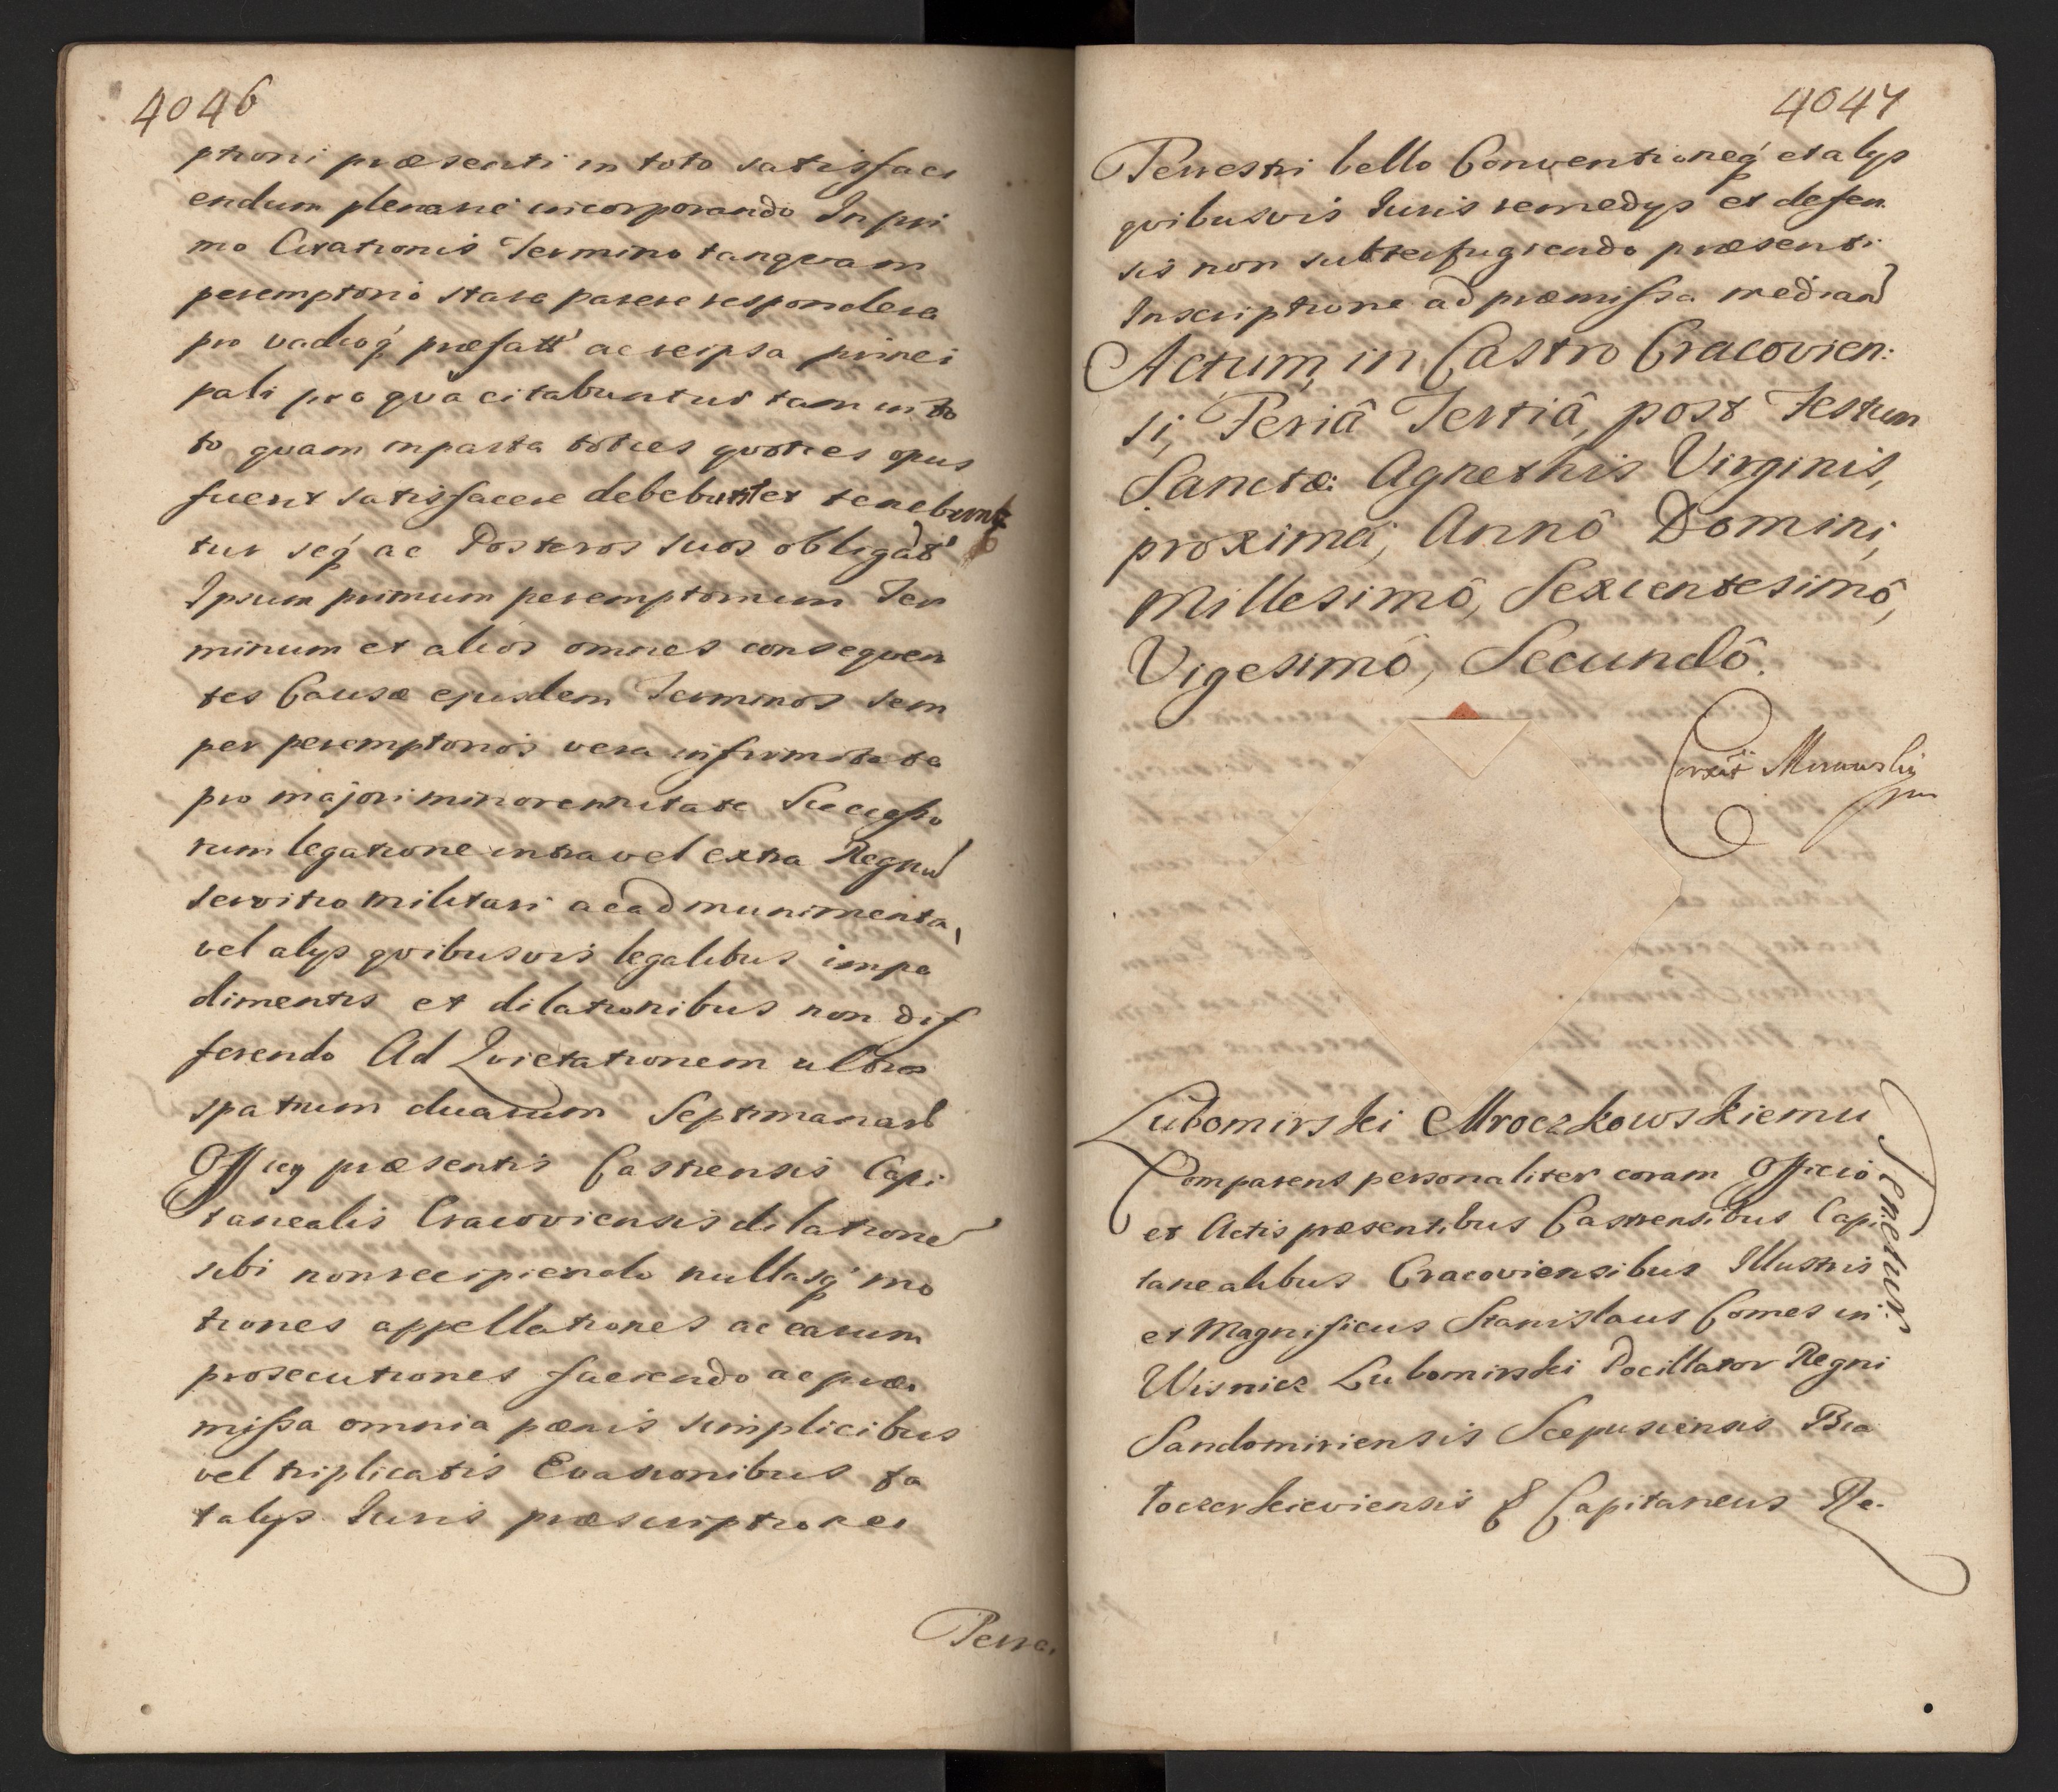 4046
ptioni præsenti in toto satisfaci
endum plenarie incorporando In pri
mo Citationis Termino tanqvam
peremptorio stare parere respondere
pro vadioq́ præfatt' ac reipsa princi
pali pro qva citabuntur tam in to
to qvam in parta toties qvoties opus
fuerit satisfacere debebunt et tenebunt
tur seq́ ac Posteros suos obligat'
Ipsum primum peremptorium Ter
minum et alios omnes conseqven
tes Causæ ejusdem Terminos sem
per peremptorios vera infirmitate
pro majori minorennitate Successo
rum legatione intra vel extra Regnu
servitio militari ac ad munimenta,
vel alys qvibusvis legalibus impe
dimentis et dilationibus non dif
ferendo Ad Qvietationem ultra
spatium duarum Septimanar
Officy præsentis Castrensis Capi
tanealis Cracoviensis dilatione
sibi non recipiendo nullasq́ mo
tiones appellationes ac earum
prosecutiones faciendo ac præ
missa omnia pænis simplicibus
vel triplicatis Evasionibus fa
talys Juris præscriptiones
Terre.
4047
Terrestri bello Conventioneq́ et alys
qvibusvis Juris remedys et defen
sis non subterfugiendo præsenti
Inscriptione ad præmissa median
Actum, in Castro Cracovien:
si, Feriâ Tertiâ, post Festum
Sanctæ: Agnethis Virginis,
proxima, Annô Domini,
Millesimô, Sexcentesimô,
Vigesimô, Secundô.
Lubomirski Mroczkowskiemu
Tenetur.
Comparens personaliter coram Officio
et Actis præsentibus Castrensibus Capi
tanealibus Cracoviensibus Illustris
et Magnificus Stanislaus Comes in
Wisnicz Lubomirski Pocillator Regni
Sandomiriensis Scepusiensis Bia
łoczerkieviensis & Capitaneus Re-